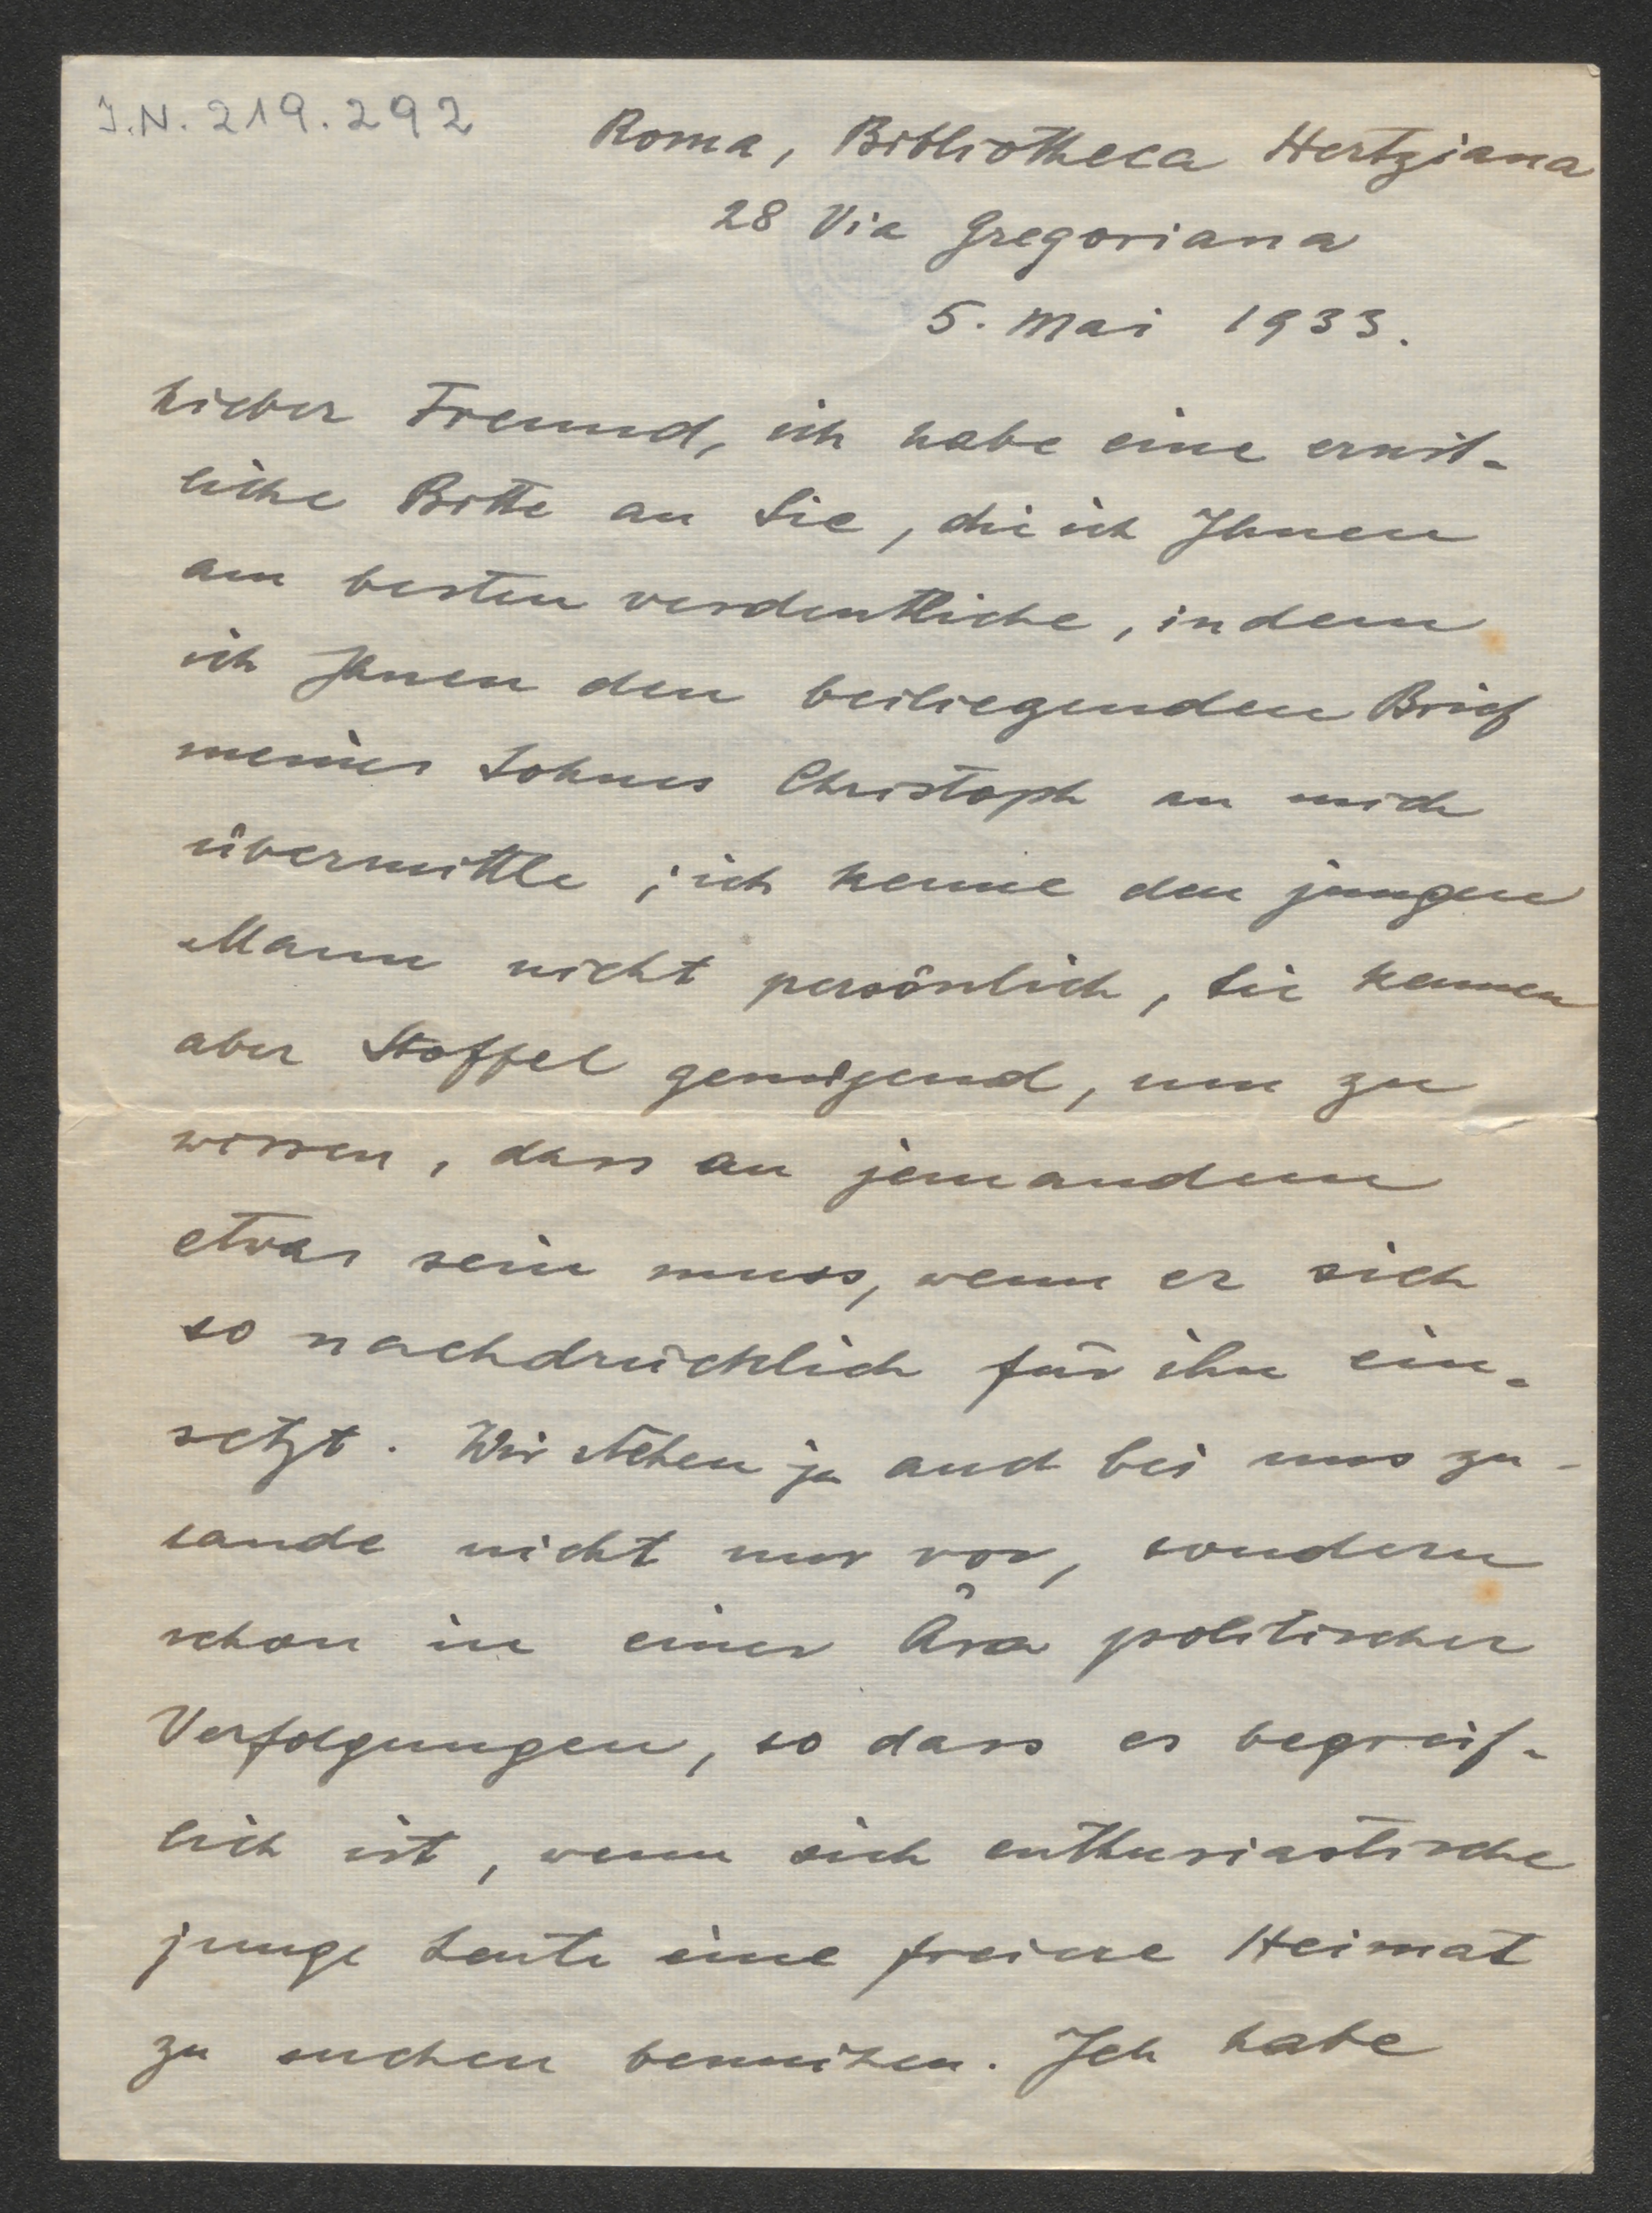 J.N. 219.292
Roma, Bibliotheca Hertziana
28 Via Gregoriana
5. Mai 1933.
Lieber Freund, ich habe eine ernst-
liche Bitte an Sie, die ich Ihnen
am besten verdeutliche, indem
ich Ihnen den beiliegenden Brief
meines Sohnes Christoph an mich
übermittle; ich kenne den jungen
Mann nicht persönlich, Sie kennen
aber Stoffel genügend, um zu
wissen, dass an jemandem
etwas sein muss, wenn er sich
so nachdrücklich für ihn ein-
setzt. Wir stehen ja auch bei uns zu-
lande nicht nur vor, sondern
schon in einer Ära politischer
Verfolgungen, so dass es begreif-
lich ist, wenn sich enthusiastische
junge Leute eine freiere Heimat
zu suchen bemühen. Ich habe